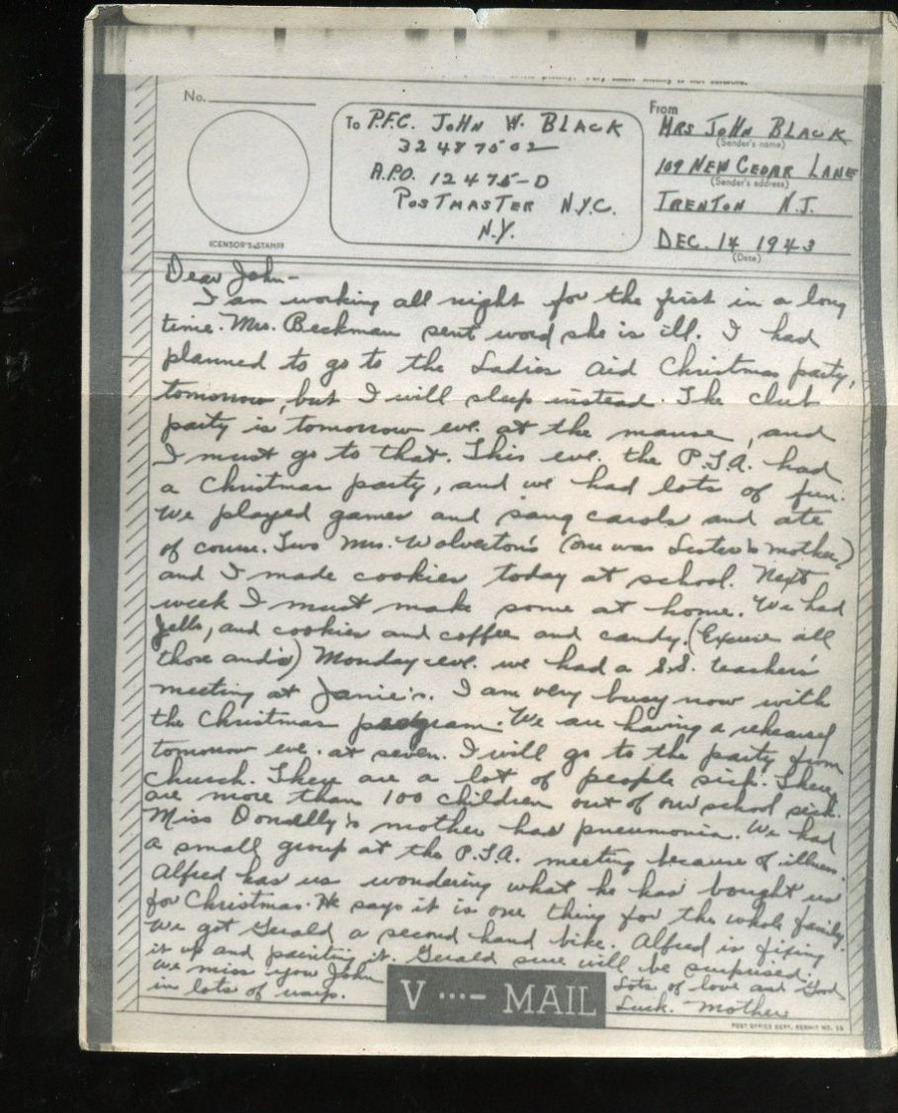 No.
(CENSOR'S STAMP)
To P.F.C. JOHN W. BLACK
32487502
A.P.O. 12475-D
POSTMASTER N.Y.C.
N.Y.
From
MRS JOHN BLACK
(Sender's name)
109 NEW CEDAR LANE
(Sender's address)
TRENTON N.J.
DEC. 14 1943
(Date)
Dear John-
I am working all night for the first in a long
time. Mrs. Beekman sent word she is ill. I had
planned to go to the Ladies Aid Christmas party,
tomorrow, but I will sleep instead. The club
party is tomorrow eve. at the manse, and
I must go to that. This eve. the P.T.A. had
a Christmas party, and we had lots of fun.
We played games and sang carols and ate
of course. Two Mrs. Wolverton's (one was Lester's mother)
and I made cookies today at school. Next
week I must make some at home. We had
Jello, and cookies and coffee and candy. (Excuse all
those and's) Monday eve. we had a S.S. teachers'
meeting at Janie's. I am very busy now with
the Christmas program. We are having a rehearsal
tomorrow eve. at seven. I will go to the party from
church. There are a lot of people sick. There
are more than 100 children out of our school sick.
Miss Donelly's mother has pneumonia. We had
a small group at the P.T.A. meeting because of illness.
Alfred has us wondering what he has bought us
for Christmas. He says it is one thing for the whole family.
We got Gerald a second hand bike. Alfred is fixing
it up and painting it. Gerald sure will be surprised.
We miss you John
in lots of ways.
Lots of love and Good
Luck. Mother
V ···– MAIL
POST OFFICE DEPT. PERMIT NO.